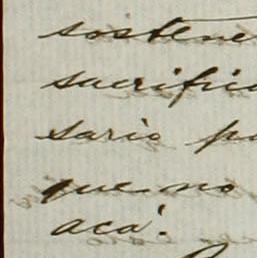 sostene
sacrific
sario p
que no
acá.